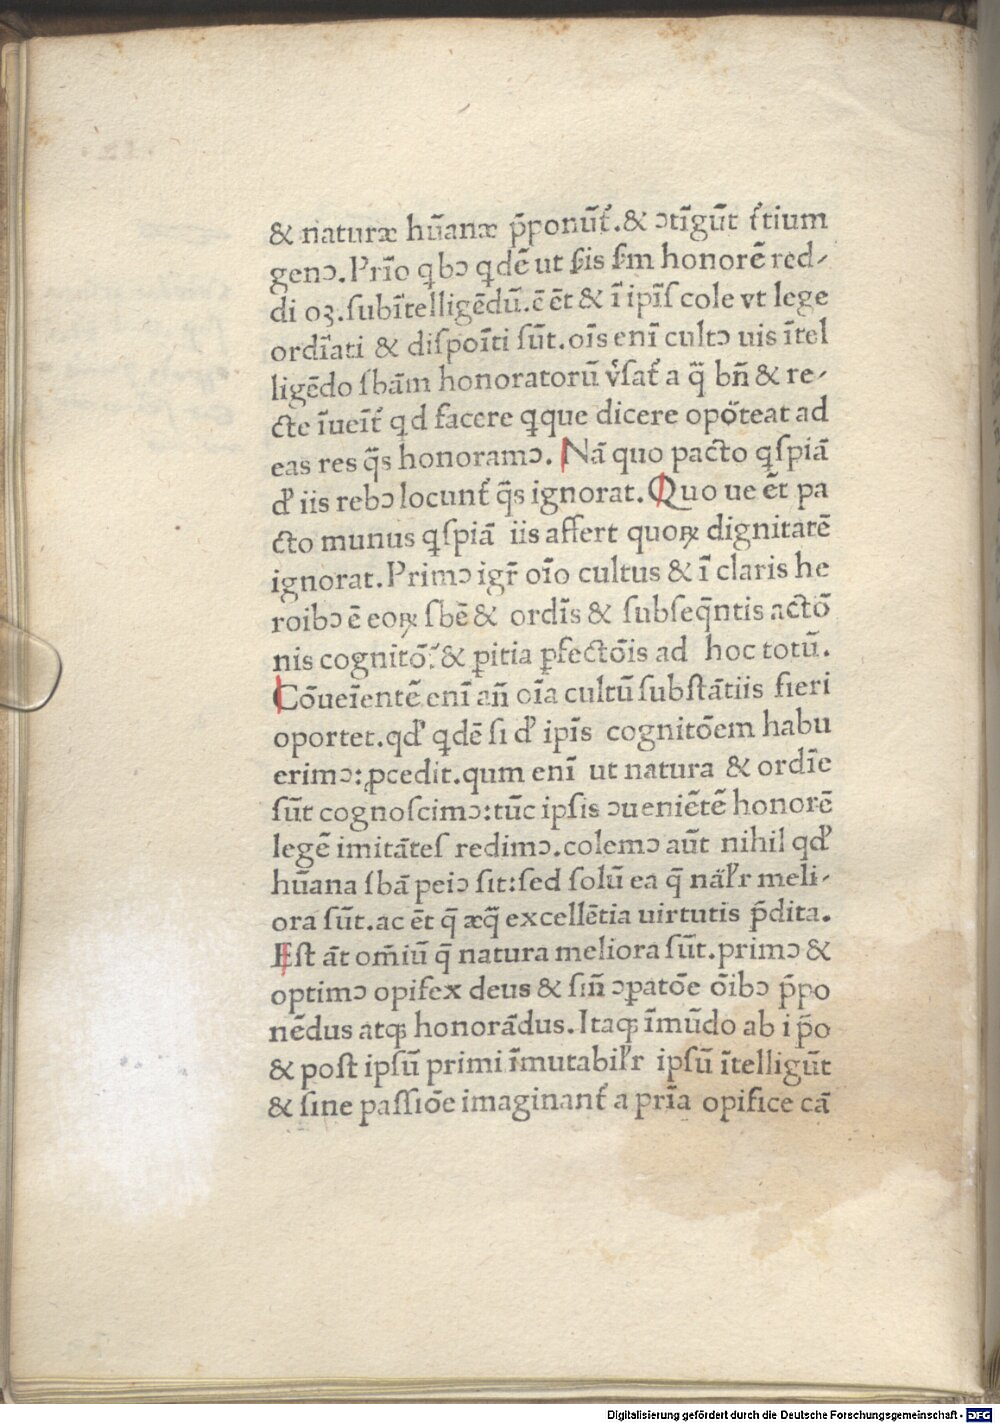 & naturæ hūanæ p̄ponūt᷑.& ɔtīgūt t᷑tium
genɔ.Prīo qbɔ qdē ut ſuis ſm honorē red⸗
di oꝫ.ſubītelligēdū.ē ēt & ī ipīſ cole vt lege
ordīati & diſpoīti ſūt.oīs enī cultɔ uis ītel
ligēdo ſbām honoratorū v̓ſat᷑ a q̄ bn̄ & re⸗
cte īueīt᷑ qd facere qque dicere opōteat ad
eas res q̄s honoramɔ. Nā quo pacto qſpiā
d̓ iis rebɔ locunt᷑ q̄s ignorat. Quo ue ēt pa
cto munus qſpiā iis affert quoꝝ dignitatē
ignorat.Primɔ igr̄ oīo cultus & ī claris he
roibɔ ē eoꝝ ſbē & ordīs & ſubſeq̄ntis actō
nis cognitō:& ꝑitia ꝑfectōis ad hoc totū.
Cōueīentē enī an̄ oīa cultū ſubſtātiis fieri
oportet.qd̓ qdē ſi d̓ ipīs cognitōem habu
erimɔ:ꝓcedit.qum enī ut natura & ordīe
ſūt cognoſcimɔ:tūc ipſis ɔueniētē honorē
legē imitāteſ redimɔ.colemɔ aūt nihil qd̓
hūana ſbā peiɔ ſit:ſed ſolū ea q̄ nāl̓r meli⸗
ora ſūt.ac ēt q̄ æq̄ excellētia uirtutis p̄dita.
Eſt āt om̄iū q̄ natura meliora ſūt.primɔ &
optimɔ opifex deus & ſin̄ ɔꝑatōe ōibɔ p̄po
nēdus atqꝫ honorādus.Itaqꝫ īmūdo ab ip̄o
& poſt ipſū primi īmutabil̓r ipſū ītelligūt
& ſine paſſiōe imaginant᷑ a prīa opifice cā
Digitalisierung gefördert durch die Deutsche Forschungsgemeinschaft - DFG